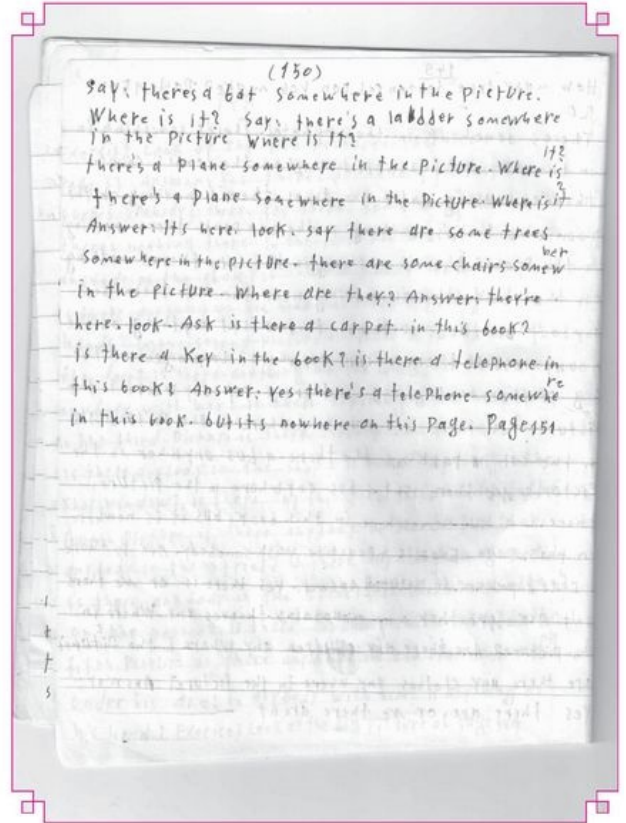 (150)
say: theres a bat somewhere in the picture.
Where is it? say: there's a ladder somewhere
in the picture where is it?
there's a plane somewhere in the picture. Where is it?
there's a plane somewhere in the picture. Where is it?
Answer: its here. look. say there are some trees
somewhere in the picture. there are some chairs somewher
in the picture. Where are they? Answer: they're
here. look. Ask is there a carpet in this book?
is there a key in the book? is there a telephone in
this book? Answer: yes there's a telephone somewhere
in this book. but its nowhere on this page. Page 151